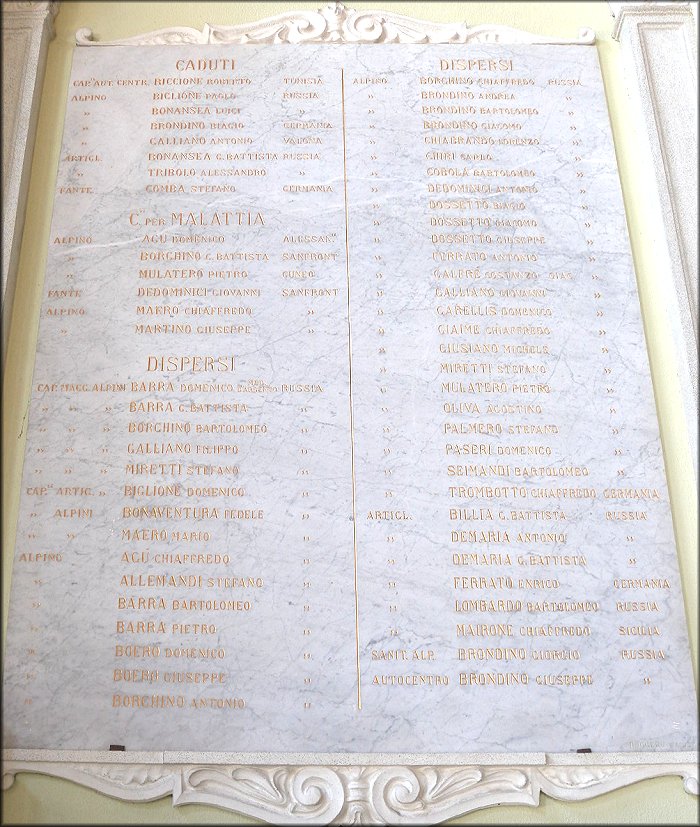 CADUTI
CAP. AUT. CENTR. RICCIONE ROBERTO TUNISIA
ALPINO BIGLIONE PAOLO RUSSIA
" BONANSEA LUIGI "
" BRONDINO BIAGIO GERMANIA
" GALLIANO ANTONIO VALONA
ARTIGL. BONANSEA G. BATTISTA RUSSIA
" TRIBOLO ALESSANDRO "
FANTE COMBA STEFANO GERMANIA
C.ti PER MALATTIA
ALPINO AGU DOMENICO ALESSAN.
" BORGHINO G. BATTISTA SANFRONT
" MULATERO PIETRO CUNEO
FANTE DEDOMINICI GIOVANNI SANFRONT
ALPINO MAERO CHIAFFREDO "
" MARTINO GIUSEPPE "
DISPERSI
CAP. MAGG. ALPINI BARRA DOMENICO RUSSIA
" " " BARRA G. BATTISTA "
" " " BORGHINO BARTOLOMEO "
" " " GALLIANO FILIPPO "
" " " MIRETTI STEFANO "
CAP. ARTIG. " BIGLIONE DOMENICO "
" ALPINI BONAVENTURA FEDELE "
" " MAERO MARIO "
ALPINO AGU CHIAFFREDO "
" ALLEMANDI STEFANO "
" BARRA BARTOLOMEO "
" BARRA PIETRO "
" BOERO DOMENICO "
" BOERO GIUSEPPE "
" BORGHINO ANTONIO "
DISPERSI
ALPINO BORGHINO CHIAFFREDO RUSSIA
" BRONDINO ANDREA "
" BRONDINO BARTOLOMEO "
" BRONDINO GIACOMO "
" CHIABRANDO LORENZO "
" CHIRI CARLO "
" COBOLA BARTOLOMEO "
" DEDOMINICI ANTONIO "
" DOSSETTO BIAGIO "
" DOSSETTO GIACOMO "
" DOSSETTO GIUSEPPE "
" FERRATO ANTONIO "
" GALFRÈ COSTANZO GIAC. "
" GALLIANO GIOVANNI "
" GARELLIS DOMENICO "
" GIAIME CHIAFFREDO "
" GIUSIANO MICHELE "
" MIRETTI STEFANO "
" MULATERO PIETRO "
" OLIVA AGOSTINO "
" PALMERO STEFANO "
" PASERI DOMENICO "
" SEIMANDI BARTOLOMEO "
" TROMBOTTO CHIAFFREDO GERMANIA
ARTIGL. BILLIA G. BATTISTA RUSSIA
" DEMARIA ANTONIO "
" DEMARIA G. BATTISTA "
" FERRATO ENRICO GERMANIA
" LOMBARDO BARTOLOMEO RUSSIA
" MAIRONE CHIAFFREDO SICILIA
SANIT. ALP. BRONDINO GIORGIO RUSSIA
AUTOCENTRO BRONDINO GIUSEPPE "